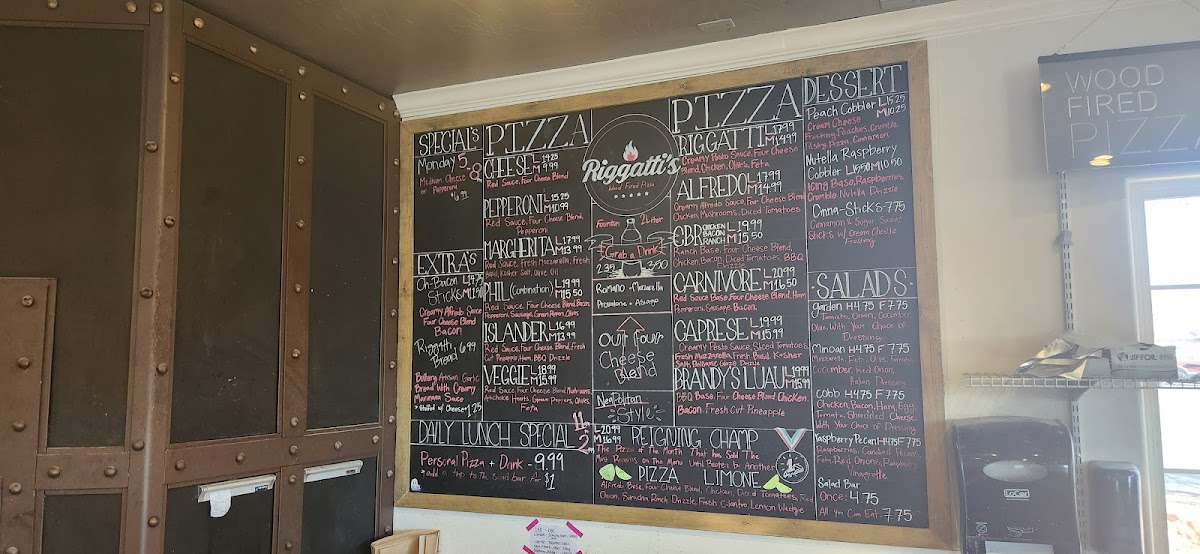 SPECIAL'S
Monday 5
8
Medium Cheese
or Pepperoni
$6.99
EXTRA'S
Oh-Bacon
Sticks
Creamy Alfredo Sauce
Four Cheese Blend
Bacon
Riggatti 6.99
Bread
Buttery Artisan Garlic
Bread With Creamy
Marinara Sauce
Stuffed w/ Cheese +1.25
PIZZA
CHEESE L 14.25
M 9.99
Red Sauce, Four Cheese Blend
PEPPERONI L 15.25
M 10.99
Red Sauce, Four Cheese Blend,
Pepperoni
MARGHERITA L 17.99
M 13.99
Red Sauce, Fresh Mozzarella, Fresh
Basil, Kosher Salt, Olive Oil
PHIL (Combination) L 19.99
M 15.50
Red Sauce, Four Cheese Blend, Bacon
Pepperoni, Sausage, Green Peppers, Olives
ISLANDER L 16.99
M 13.99
Red Sauce, Four Cheese Blend, Fresh
Cut Pineapple, Ham, BBQ Drizzle
VEGGIE L 18.99
M 15.99
Red Sauce, Four Cheese Blend, Mushrooms,
Artichoke Hearts, Green Peppers, Olives,
Feta
Riggatti's
Wood Fired Pizza
Fountain 2 Liter
Grab a Drink
2.35 3.50
Romano - Mozzarella
Provolone - Asiago
Our Four
Cheese
Blend
Neapolitan
Style
PIZZA
RIGGATTI L 17.99
M 14.99
Creamy Pesto Sauce, Four Cheese
Blend, Chicken, Olives, Feta
ALFREDO L 17.99
M 14.99
Creamy Alfredo Sauce, Four Cheese Blend
Chicken, Mushrooms, Diced Tomatoes
CBR CHICKEN BACON RANCH L 19.99
M 15.50
Ranch Base, Four Cheese Blend,
Chicken, Bacon, Diced Tomatoes, BBQ
Drizzle
CARNIVORE L 20.99
M 16.50
Red Sauce Base, Four Cheese Blend, Ham
Pepperoni, Sausage, Bacon
CAPRESE L 19.99
M 15.99
Creamy Pesto Sauce, Sliced Tomatoes,
Fresh Mozzarella, Fresh Basil, Kosher
Salt, Balsamic Glaze Drizzle
BRANDY'S LUAU L 19.99
M 15.99
BBQ Base, Four Cheese Blend, Chicken,
Bacon, Fresh Cut Pineapple
DESSERT
Peach Cobbler L 15.25
M 10.25
Cream Cheese
Frosting, Peaches, Crumble,
Pastry Pizza, Cinnamon
Nutella Raspberry
Cobbler L 15.50 M 10.50
Icing Base, Raspberries,
Crumble, Nutella Drizzle
Cinna-Sticks-7.75
Cinnamon & Sugar Sweet
Sticks w/ Cream Cheese
Frosting
SALADS
Garden H 4.75 F 7.75
Tomato, Onion, Cucumber,
Olive, With Your Choice of
Dressing
Minoan H 4.75 F 7.75
Mozzarella, Feta, Olive, Tomato,
Cucumber, Red Onion,
Italian Dressing
Cobb H 4.75 F 7.75
Chicken, Bacon, Ham, Egg
Tomato, Shredded Cheese
With Your Choice of Dressing
Raspberry Pecan H 4.75 F 7.75
Raspberries, Candied Pecans,
Feta, Red Onions, Raspberry
Vinegrette
Salad Bar
Once: 4.75
All You Can Eat: 7.75
DAILY LUNCH SPECIAL 11
2
Personal Pizza + Drink - 9.99
*add a trip to the salad bar for $1
L 20.99
M 16.99
REIGNING CHAMP
The Pizza of The Month That has Sold The
Most Remains on The Menu Until Beaten by Another
PIZZA LIMONE
Alfredo Base, Four Cheese Blend, Chicken, Diced Tomatoes, Red
Onion, Sriracha Ranch Drizzle, Fresh Cilantro, Lemon Wedge
WOOD
FIRED
PIZZA
JIFFOIL
LoCor